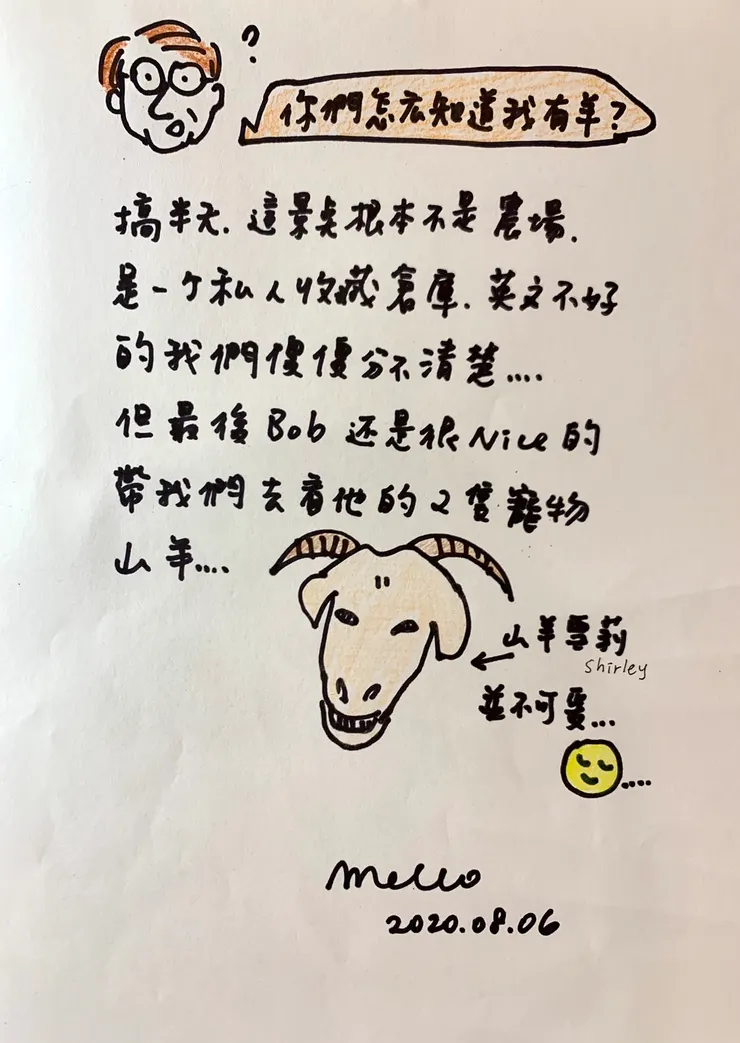 ?
你們怎么知道我有羊?
搞半天. 這景點根本不是農場.
是一个私人收藏倉庫. 英文不好
的我們傻傻分不清楚....
但最後Bob 还是很Nice的
帶我們去看他的2隻寵物
山羊....
山羊雪莉
Shirley
並不可愛...
....
Mello
2020.08.06